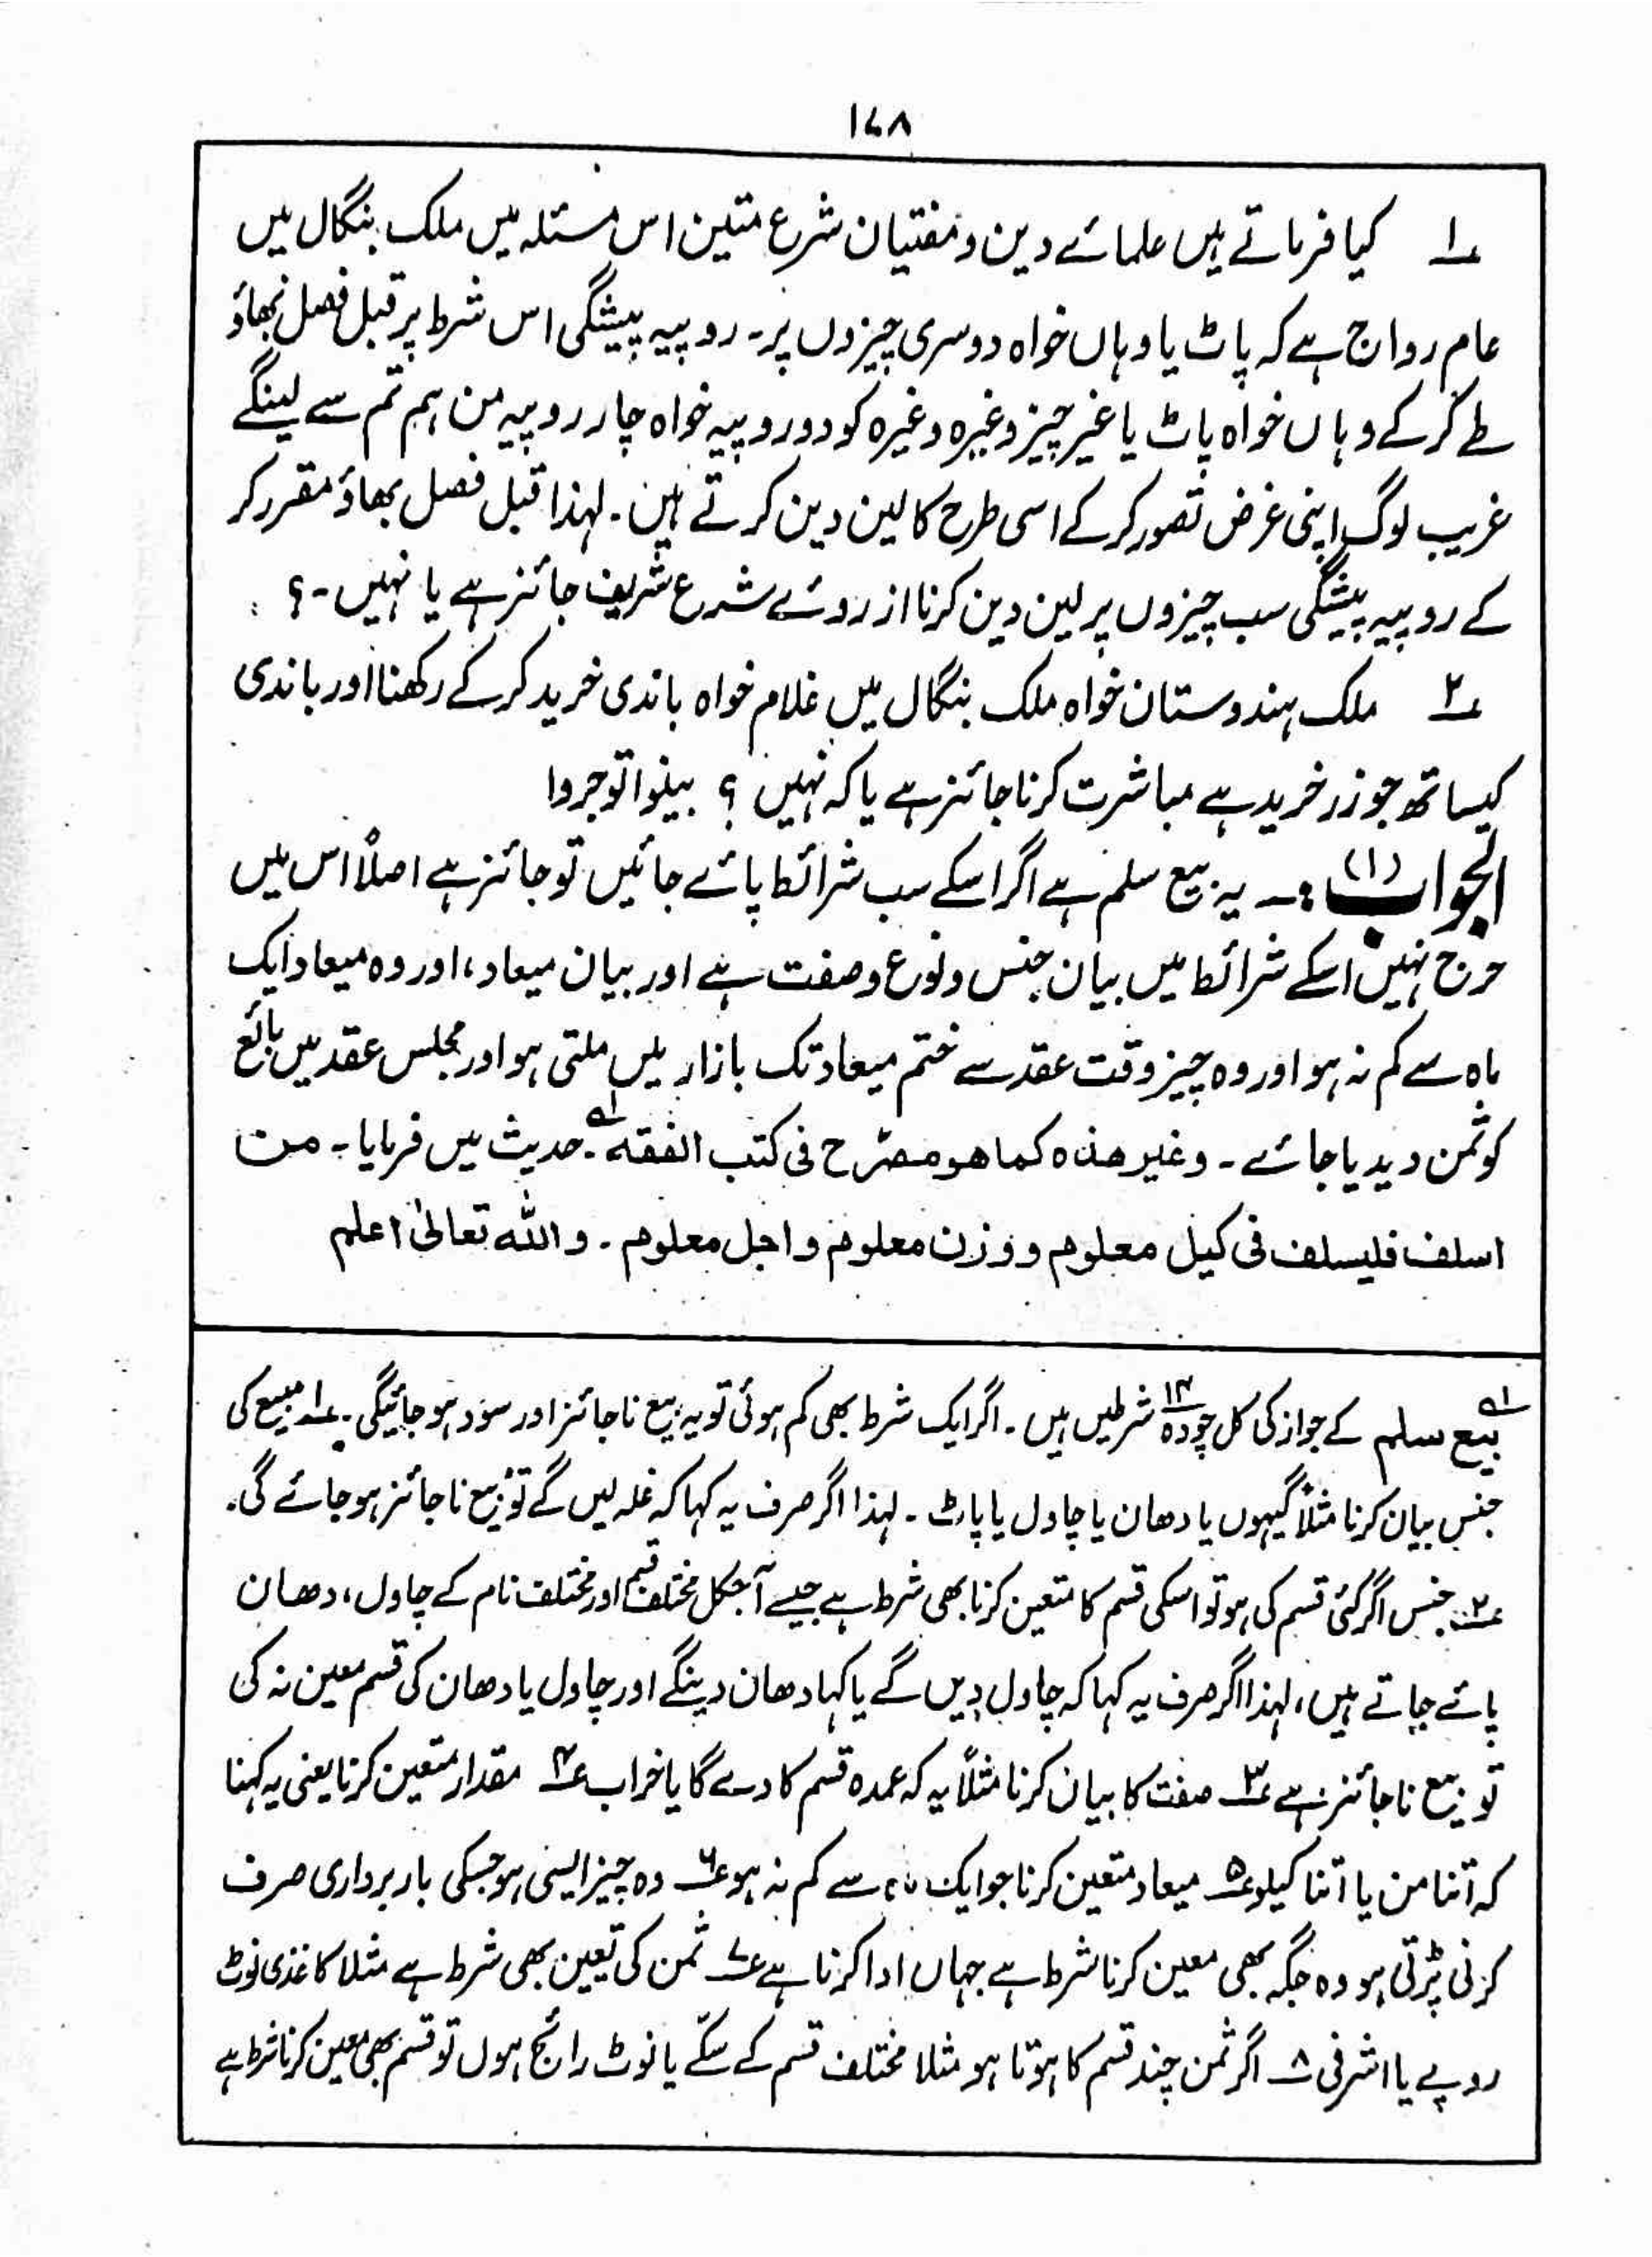 ۱۷۸
؏۱ کیا فرماتے ہیں علمائے دین ومفتیان شرع متین اس مسئلہ میں ملک بنگال میں
عام رواج ہے کہ پاٹ یا وہاں خواہ دوسری چیزوں پر۔ روپیہ پیشگی اس شرط پر قبل فصل بھاؤ
طے کر کے وہاں خواہ پاٹ یا غیر چیز وغیرہ وغیرہ کو دو روپیہ خواہ چار روپیہ من ہم تم سے لینگے
غریب لوگ اپنی غرض تصور کر کے اسی طرح کا لین دین کرتے ہیں۔ لہذا قبل فصل بھاؤ مقرر کر
کے روپیہ پیشگی سب چیزوں پر لین دین کرنا از روئے شرع شریف جائز ہے یا نہیں۔؟
؏۲ ملک ہندوستان خواہ ملک بنگال میں غلام خواہ باندی خرید کر کے رکھنا اور باندی
کیساتھ جو زر خرید ہے مباشرت کرنا جائز ہے یا کہ نہیں؟ بینوا توجروا
الجواب (۱) :۔ یہ بیع سلم ہے اگر اسکے سب شرائط پائے جائیں تو جائز ہے اصلاً اس میں
حرج نہیں اسکے شرائط میں بیان جنس ونوع وصفت ہے اور بیان میعاد، اور وہ میعاد ایک
ماہ سے کم نہ ہو اور وہ چیز وقت عقد سے ختم میعاد تک بازار میں ملتی ہو اور مجلس عقد میں بائع
کو ثمن دیدیا جائے۔ وغیر ھذہ کما ھو مصرّح فی کتب الفقہ ؎۱۔ حدیث میں فرمایا۔ من
اسلف فلیسلف فی کیل معلوم ووزن معلوم واجل معلوم۔ واللہ تعالیٰ اعلم
؎۱ بیع سلم کے جواز کی کل چودہ ۱۴ شرطیں ہیں۔ اگر ایک شرط بھی کم ہوئی تو یہ بیع ناجائز اور سود ہو جائیگی۔ ؏۱ مبیع کی
جنس بیان کرنا مثلاً گیہوں یا دھان یا چاول یا پاٹ۔ لہذا اگر صرف یہ کہا کہ غلہ لیں گے تو بیع ناجائز ہو جائے گی۔
؏۲ جنس اگر کئی قسم کی ہو تو اسکی قسم کا متعین کرنا بھی شرط ہے جیسے آجکل مختلف قسم اور مختلف نام کے چاول، دھان
پائے جاتے ہیں، لہذا اگر صرف یہ کہا کہ چاول دیں گے یا کہا دھان دینگے اور چاول یا دھان کی قسم معین نہ کی
تو بیع ناجائز ہے ؏۳ صفت کا بیان کرنا مثلاً یہ کہ عمدہ قسم کا دے گا یا خراب ؏۴ مقدار متعین کرنا یعنی یہ کہنا
کہ اتنا من یا اتنا کیلو ؏۵ میعاد متعین کرنا جو ایک ماہ سے کم نہ ہو ؏۶ وہ چیز ایسی ہو جسکی بار برداری صرف
کرنی پڑتی ہو وہ جگہ بھی معین کرنا شرط ہے جہاں ادا کرنا ہے ؏۷ ثمن کی تعیین بھی شرط ہے مثلا کاغذی نوٹ
روپے یا اشرفی ؏۸ اگر ثمن چند قسم کا ہوتا ہو مثلا مختلف قسم کے سکّے یا نوٹ رائج ہوں تو قسم بھی معین کرنا شرط ہے